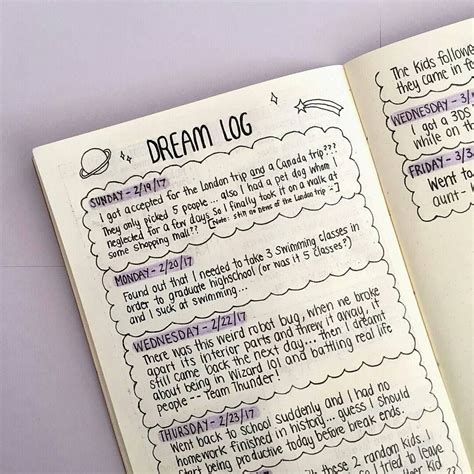 DREAM LOG
SUNDAY - 2/19/17
I got accepted for the London trip and a Canada trip???
They only picked 5 people... also I had a pet dog whom I
neglected for a few days so I finally took it on a walk at
some shopping mall?? [Note: still no news of the London trip -_-]
MONDAY - 2/20/17
Found out that I needed to take 3 swimming classes in
order to graduate highschool (or was it 5 classes?)
and I suck at swimming...
WEDNESDAY - 2/22/17
There was this weird robot bug, when we broke
apart its interior parts and threw it away, it
still came back the next day... then I dreamt
about being in Wizard 101 and battling real life
people -- Team Thunder!
THURSDAY - 2/23/17
Went back to school suddenly and I had no
homework finished in history... guess I should
start being productive today before break ends.
these 2 random kids. I
tried to leave
The kids follow
they came in fo
WEDNESDAY - 3/
I got a 3DS
while on
FRIDAY - 3/
Went to
aunt-